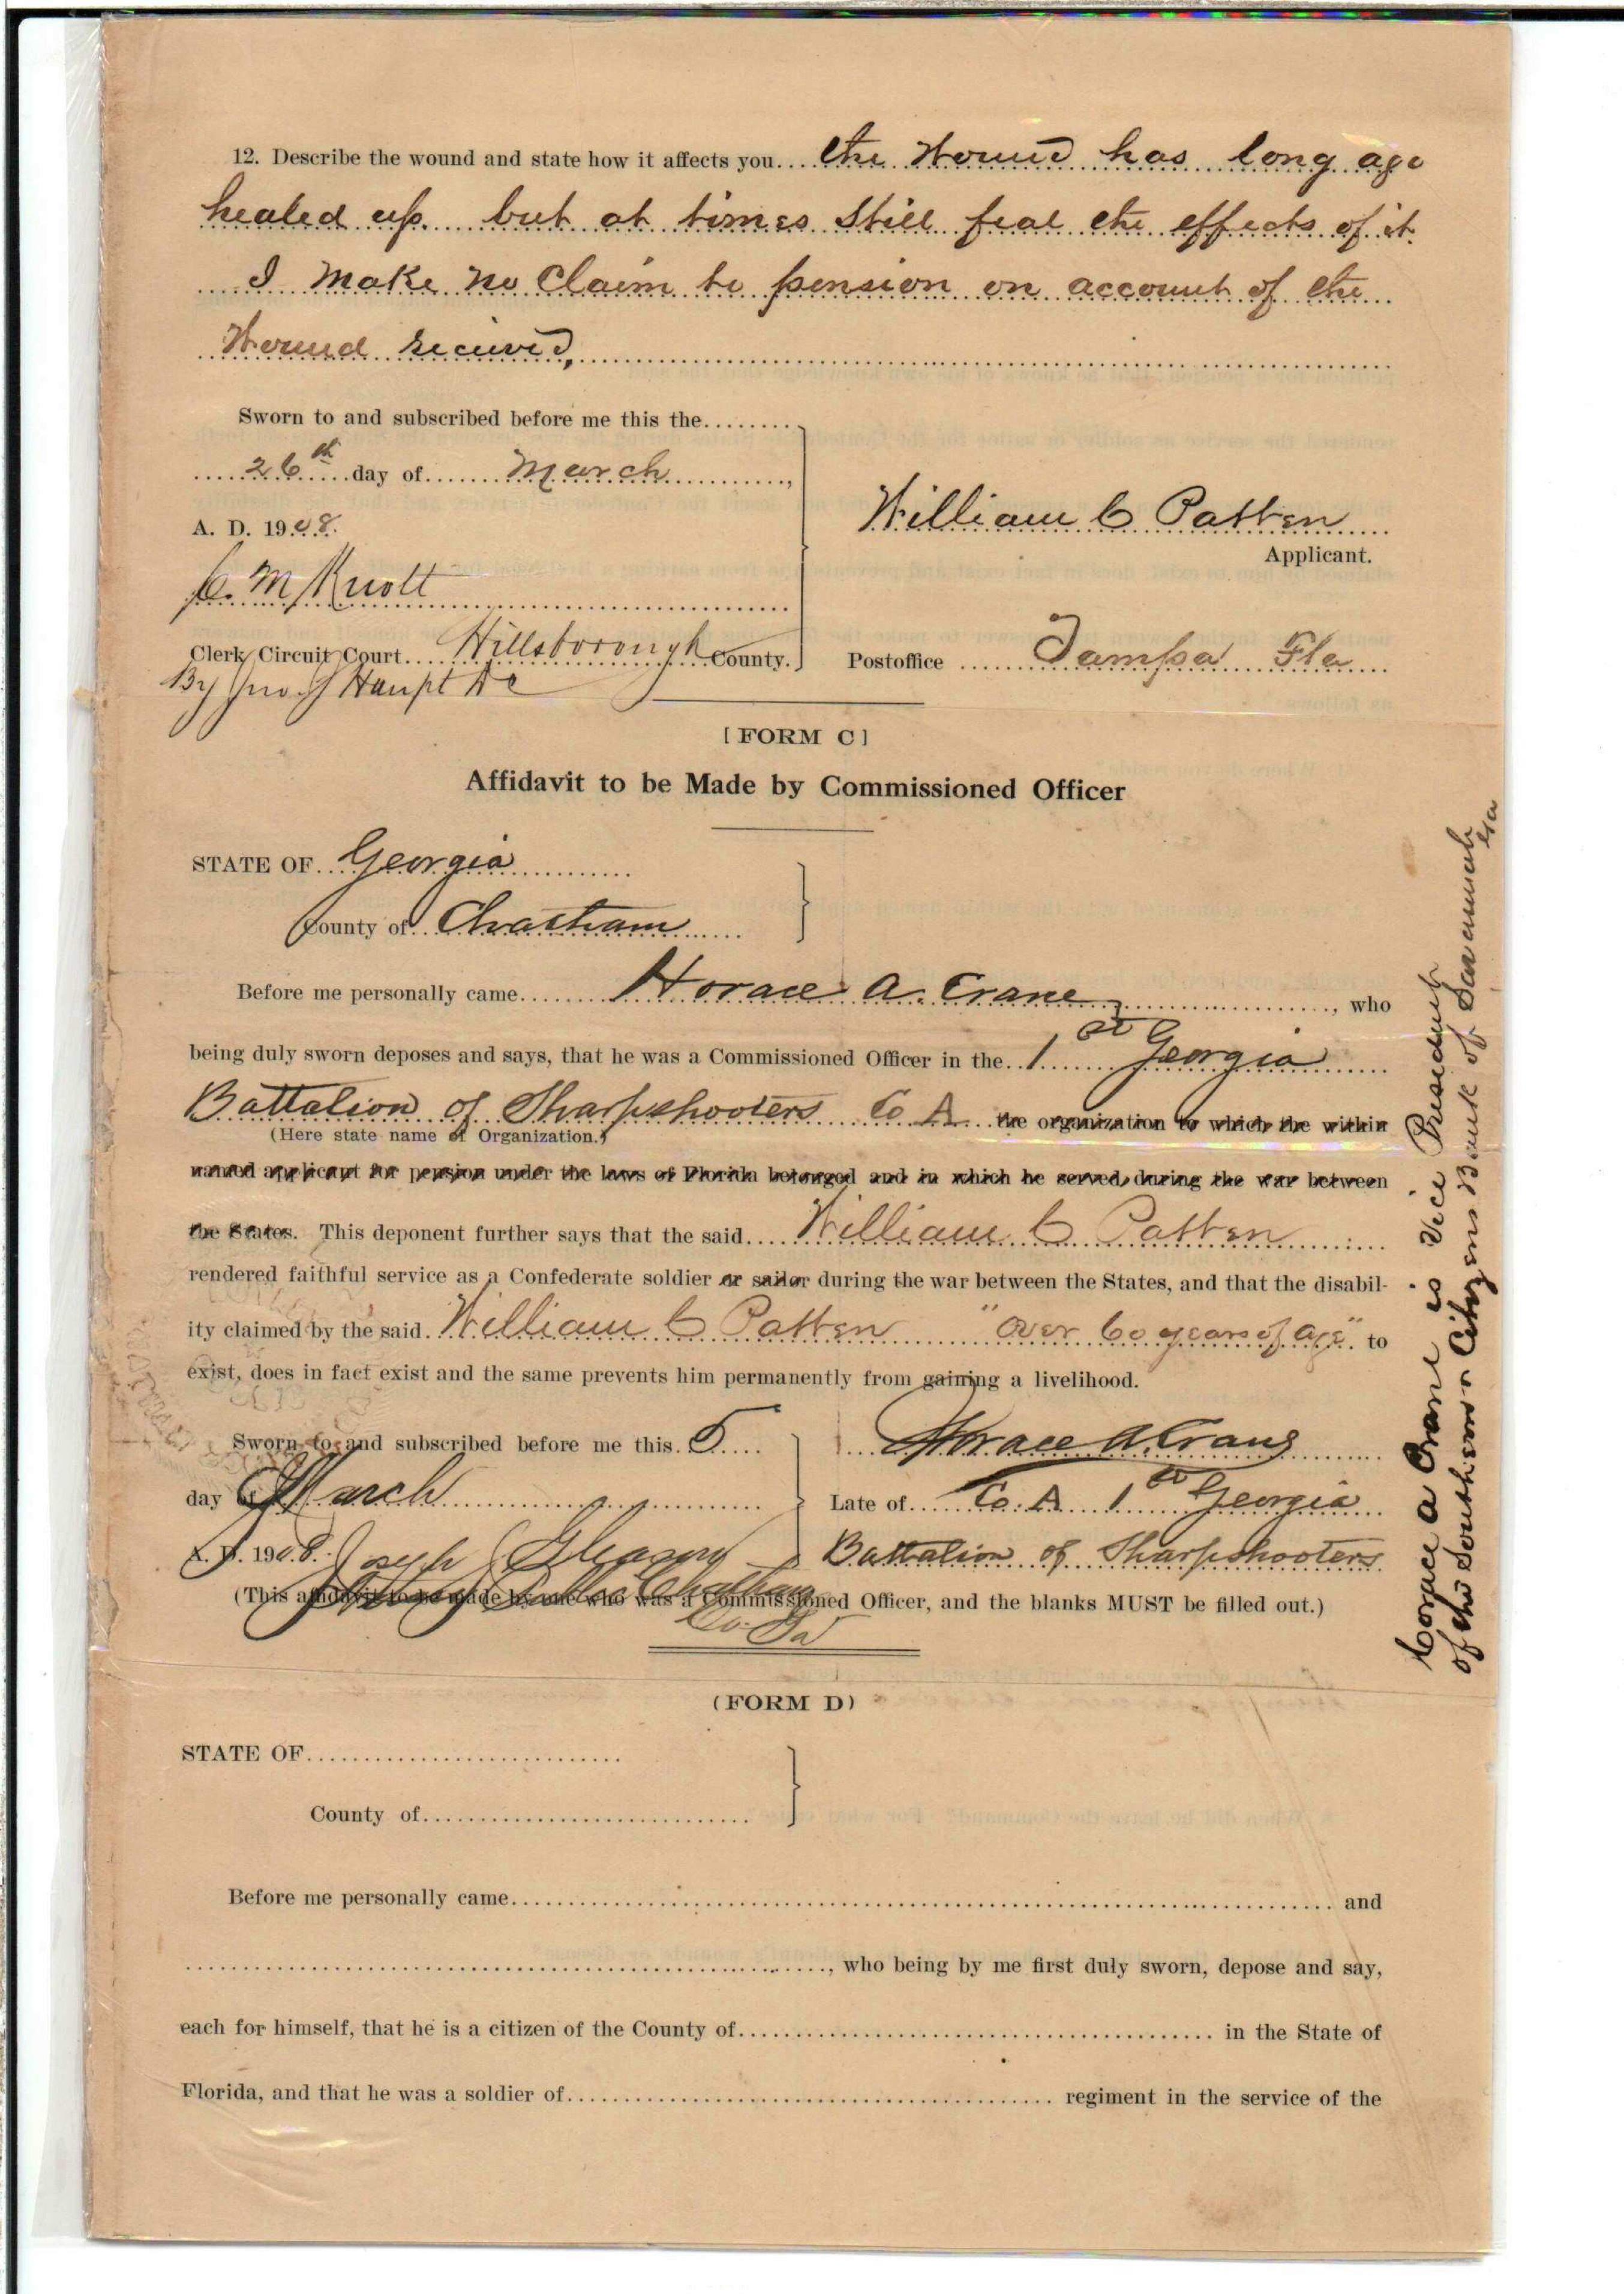 12. Describe the wound and state how it affects you.... the Wound has long ago
healed up. but at times still feal the effects of it.
I make no Claim to pension on account of the
Wound recieved,
Sworn to and subscribed before me this the.........
26th day of March,
A. D. 1908.
William C Patten
Applicant.
C. M Knott
Clerk Circuit Court.... Hillsborough County.
Postoffice ...... Tampa Fla
By Jno Haupt DC
[FORM C]
Affidavit to be Made by Commissioned Officer
STATE OF... Georgia
County of.. Chatham
Before me personally came........ Horace A. Crane, who
being duly sworn deposes and says, that he was a Commissioned Officer in the.. 1st Georgia
Battalion of Sharpshooters Co A the organization to which the within
(Here state name of Organization.)
named applicant for pension under the laws of Florida belonged and in which he served, during the war between
the States. This deponent further says that the said.... William C Patten
rendered faithful service as a Confederate soldier or sailor during the war between the States, and that the disabil-
ity claimed by the said. William C Patten "over 60 years of age" to
exist, does in fact exist and the same prevents him permanently from gaining a livelihood.
Sworn to and subscribed before me this. 5....
Horace A Crane
day of March
Late of..... Co. A 1st Georgia
A. D. 1908. Joseph Gleason
Battalion of Sharpshooters.
(This affidavit to be made by one who was a Commissioned Officer, and the blanks MUST be filled out.)
Chatham
Co. Ga
Horace A Crane is Vice President
of the Southern Citizens Bank of Savannah
Ga
(FORM D)
STATE OF............................
County of.............................
Before me personally came.......................................................................... and
.........................................................., who being by me first duly sworn, depose and say,
each for himself, that he is a citizen of the County of........................................... in the State of
Florida, and that he was a soldier of............................................ regiment in the service of the